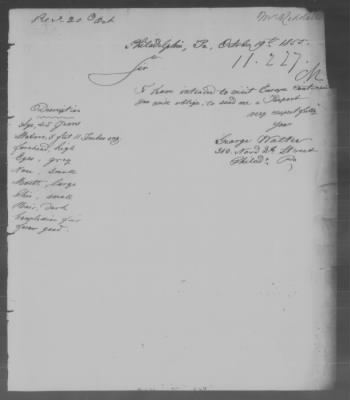 Recd. 20 Oct
Mr Riddell
Philadelphia, Pa, October 19th 1855.
Sir
11.227.
I have intended to visit Europe
you will oblige, to send me a Passport
very respectfully
Your
George Walter
310 Nord 2th Street
Philad. Pa
Description
Age, 45 Years
Stature, 5 feet 11 Inches eng.
forehead, high
Eyes, grey
Nose, small
Mouth, large
Chin, small
Hair, dark
Complexion fair